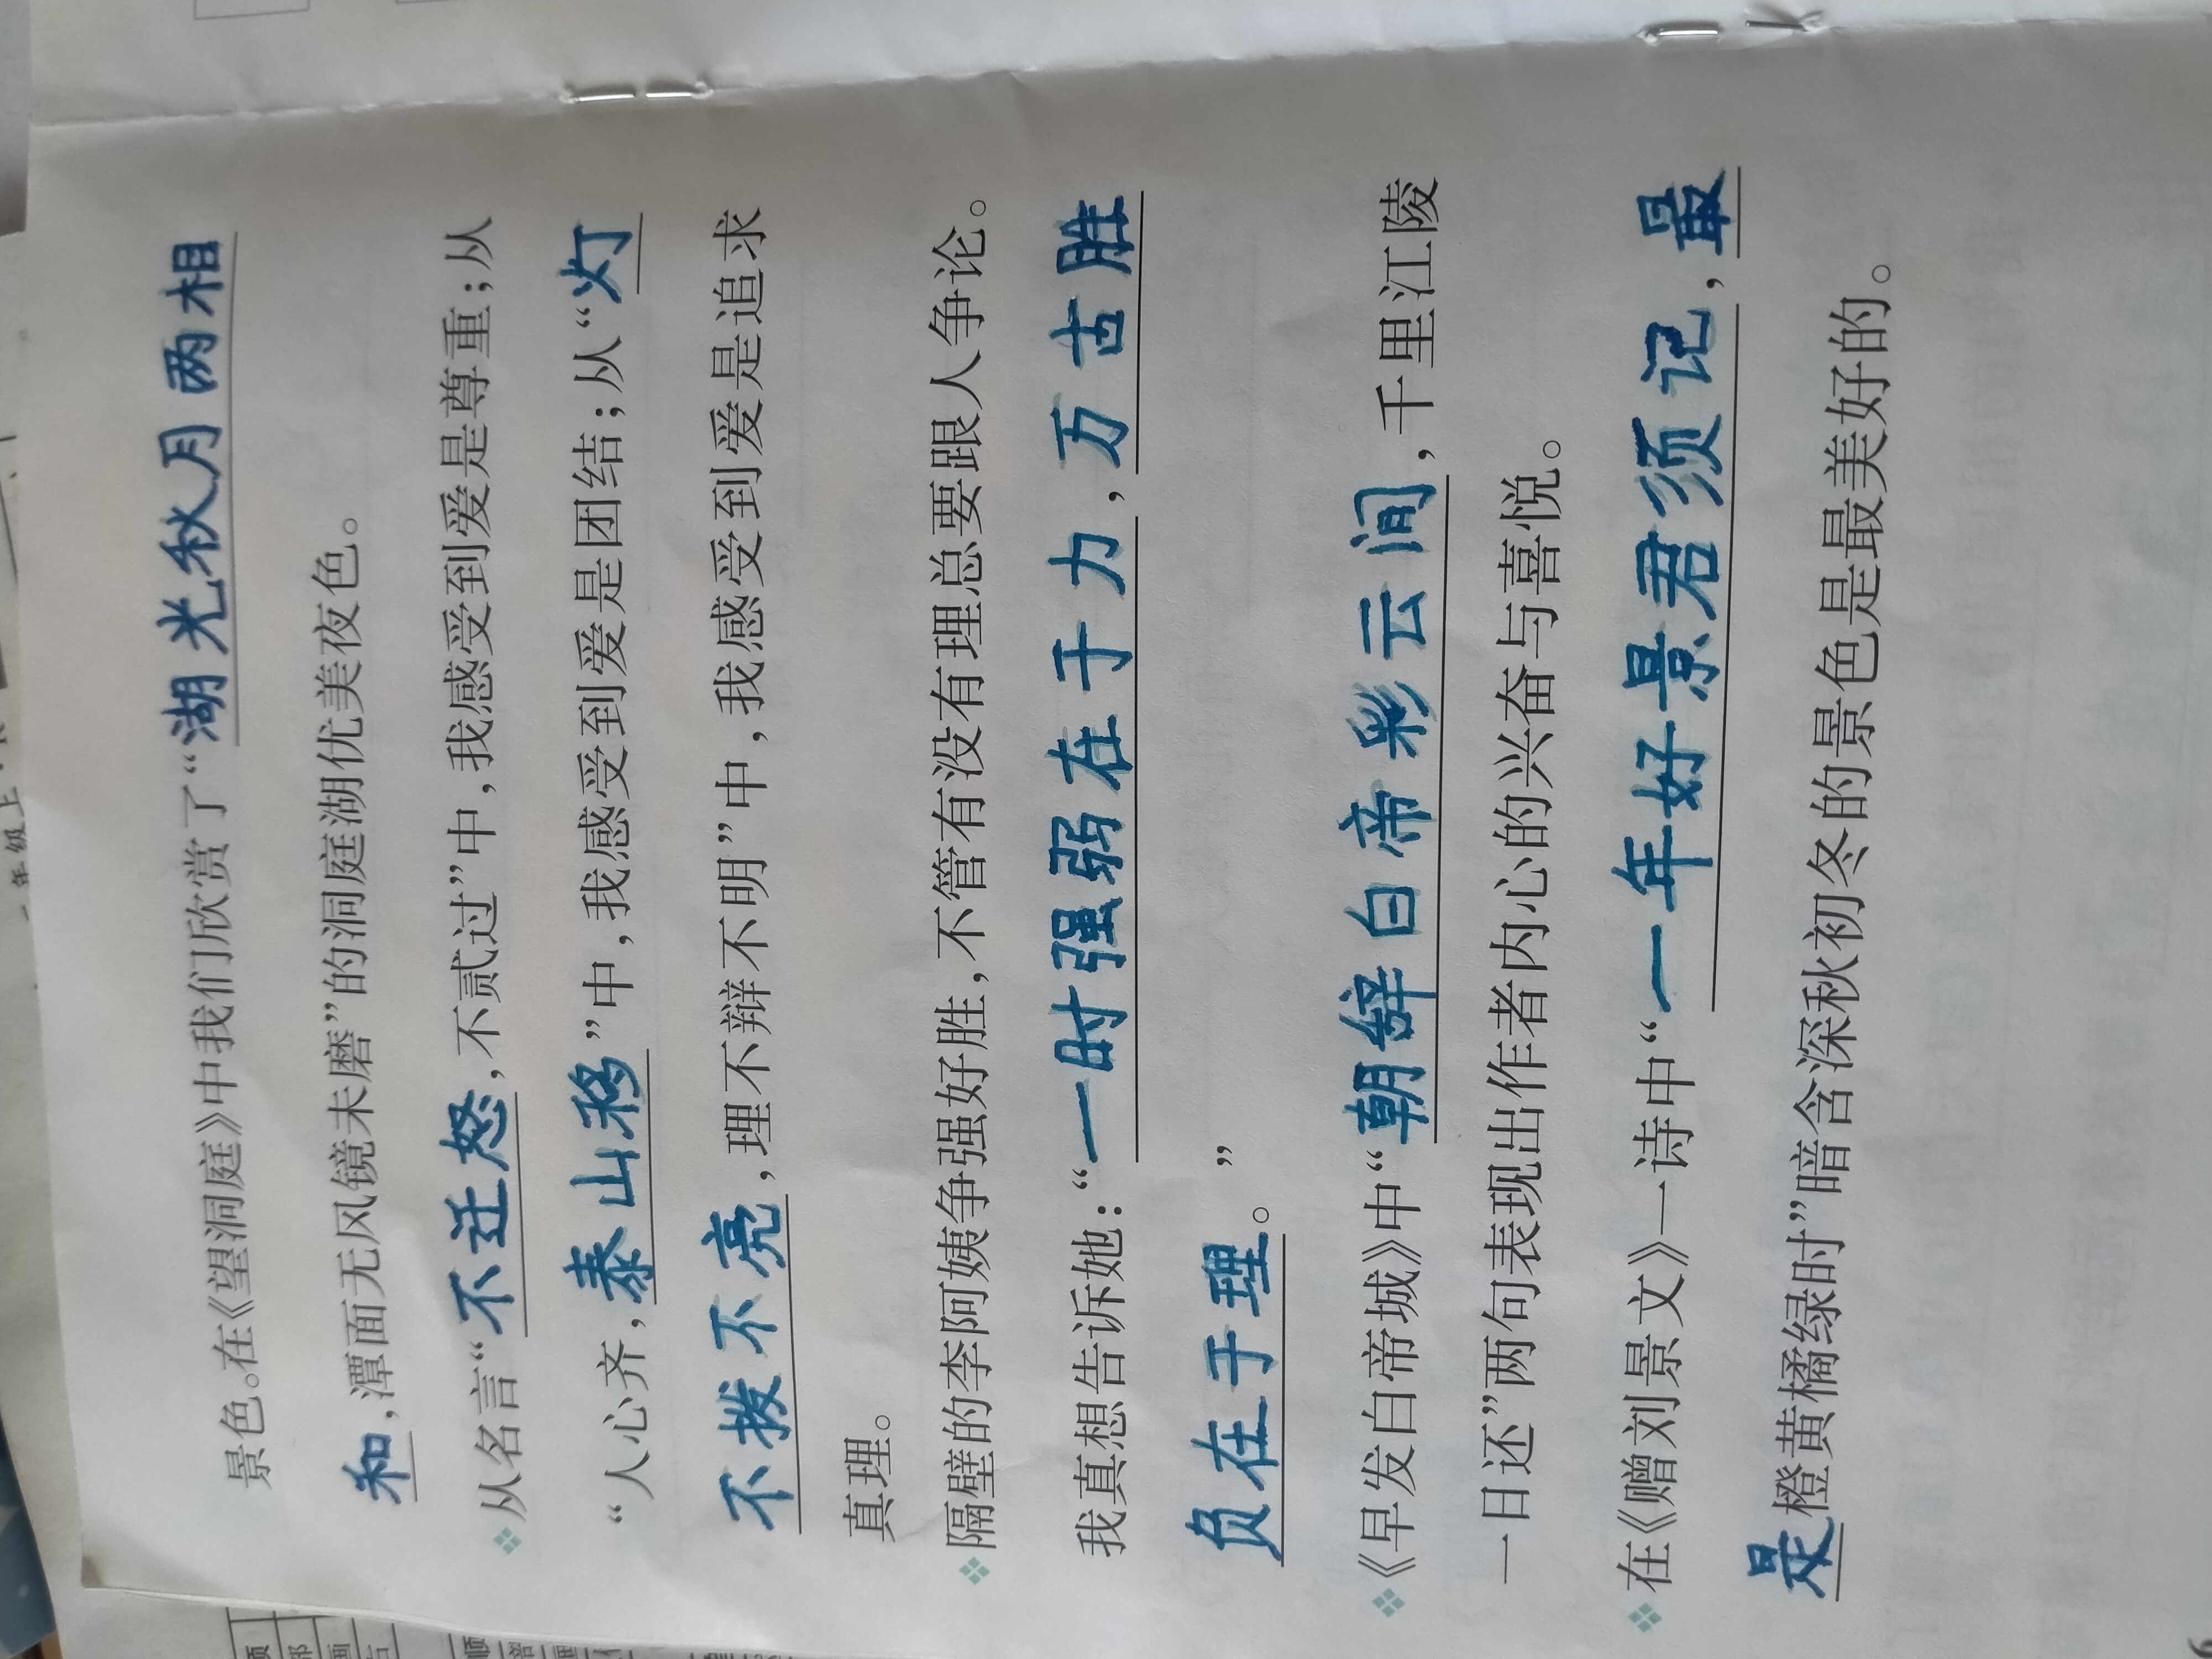 景色。在《望洞庭》中我们欣赏了“湖光秋月两相
和,潭面无风镜未磨”的洞庭湖优美夜色。
从名言“不迁怒,不贰过”中,我感受到爱是尊重;从
“人心齐,泰山移”中,我感受到爱是团结;从“灯
不拨不亮,理不辩不明”中,我感受到爱是追求
真理。
隔壁的李阿姨争强好胜,不管有没有理总要跟人争论。
我真想告诉她:“一时强弱在于力,万古胜
负在于理。”
《早发白帝城》中“朝辞白帝彩云间,千里江陵
一日还”两句表现出作者内心的兴奋与喜悦。
在《赠刘景文》一诗中“一年好景君须记,最
是橙黄橘绿时”暗含深秋初冬的景色是最美好的。